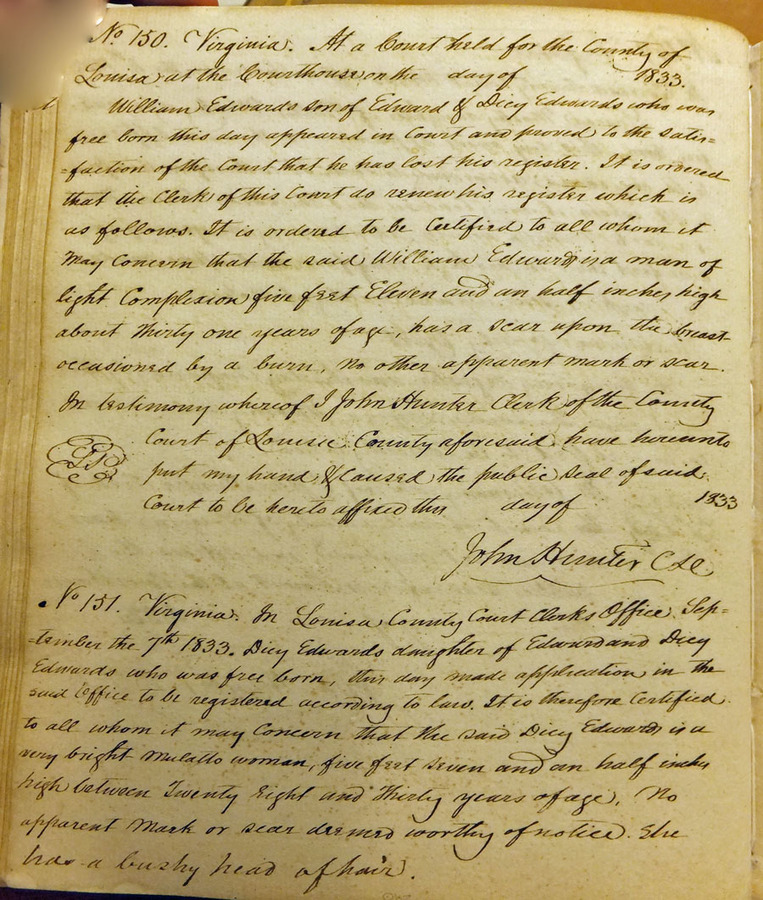 No 150. Virginia. At a Court held for the County of
Louisa at the Courthouse on the day of 1833.
William Edwards son of Edward & Dicy Edwards who was
free born this day appeared in Court and proved to the satis=
=faction of the Court that he has lost his register. It is ordered
that the Clerk of this Court do renew his register which is
as follows. It is ordered to be Certified to all whom it
May Concern that the said William Edwards is a man of
light Complexion five feet Eleven and an half inches high
about Thirty one years of age, has a scar upon the breast
occasioned by a burn, No other apparent mark or scar.
In testimony whereof I John Hunter Clerk of the County
Court of Louisa County aforesaid have hereunto
put my hand & Caused the public Seal of said
Court to be hereto affixed this day of 1833
John Hunter
No 151. Virginia. In Louisa County Court Clerks Office Sep=
=tember the 7th 1833. Dicy Edwards daughter of Edward and Dicy
Edwards who was free born, this day made application in the
said Office to be registered according to law. It is therefore Certified
to all whom it may Concern that the said Dicy Edwards is a
very bright Mulatto woman, five feet seven and an half inches
high between Twenty Eight and Thirty years of age, No
apparent Mark or scar deemed worthy of notice. She
has a bushy head of hair.